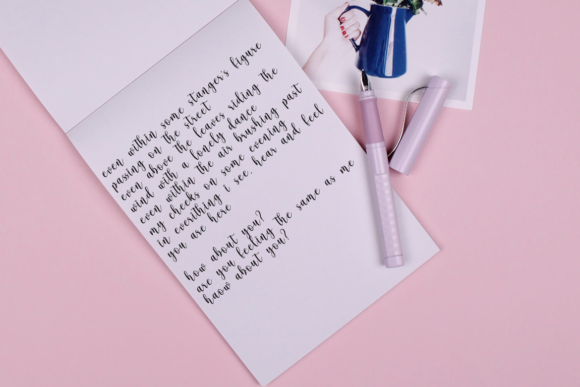 even within some stanger's figure
passing on the street
even above the leaves riding the
wind with a lonely dance
even within the air brushing past
my cheeks on some evening
in everithing i see, hear and feel
you are here
how about you?
are you feeling the same as me
haow about you?